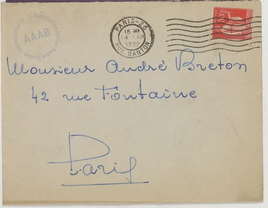 AAAB
PARIS-25
RUE DANTON
Monsieur André Breton
42 rue Fontaine
Paris